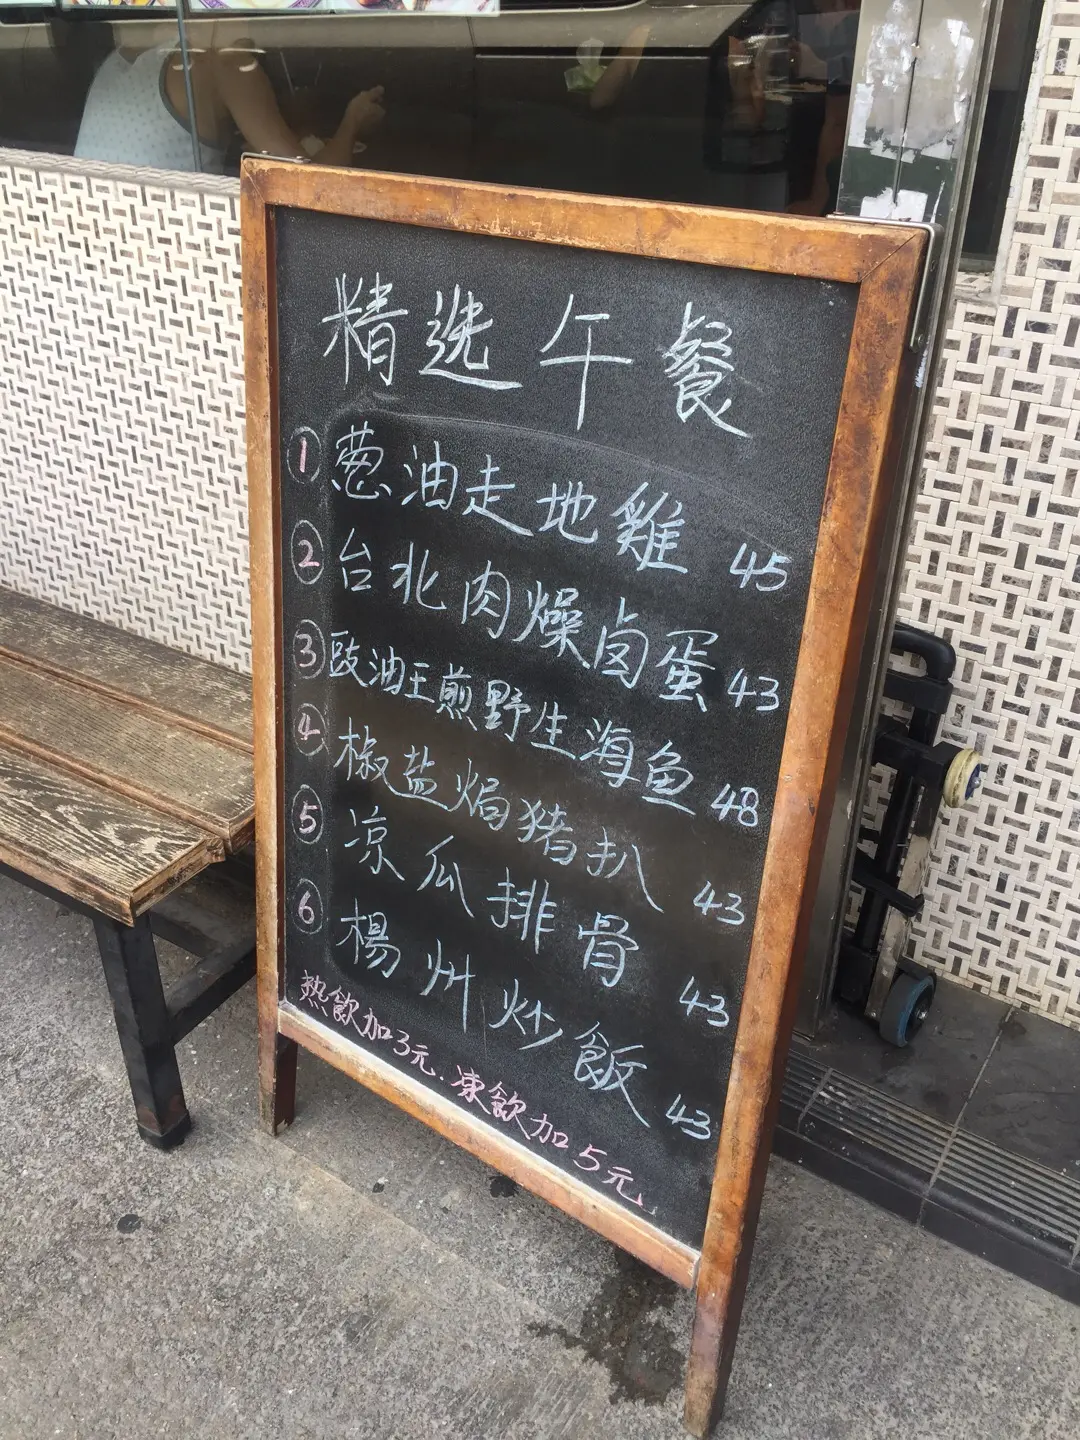 精选午餐
① 葱油走地雞 45
② 台北肉燥卤蛋 43
③ 豉油王煎野生海鱼 48
④ 椒盐焗猪扒 43
⑤ 凉瓜排骨 43
⑥ 楊州炒飯 43
热飲加3元.凍飲加5元